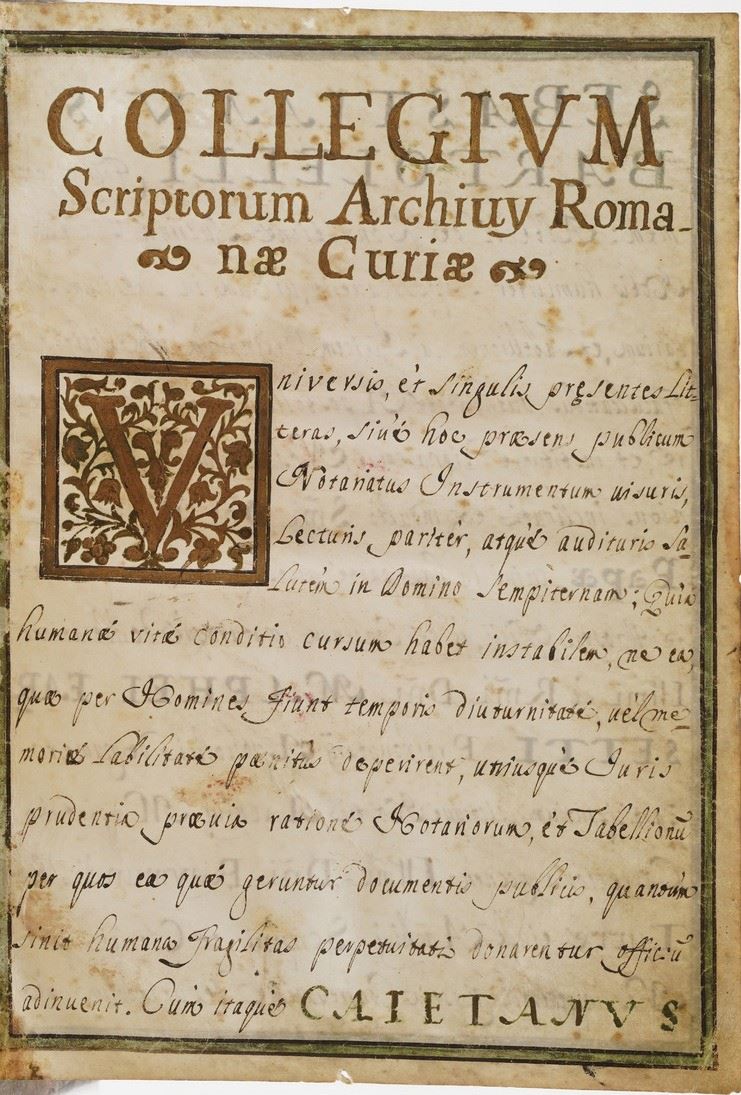 COLLEGIVM
Scriptorum Archiuy Roma-
næ Curiæ
Vniversis, et singulis pręsentes Lit-
teras, siué hoc præsens publicum
Notariatus Instrumentum uisuris,
Lecturis paritèr, atqué audituris sa-
lutem in Domino sempiternam; Quia
humanæ vitæ conditio cursum habet instabilem, ne ea,
quæ per Homines fiunt temporis diuturnitaté, vèl me-
moriæ Labilitaté pænitus deperirent, utriusqué Iuris
prudentia præuia rationé Notariorum, ét Tabellionū
per quos ea quæ geruntur documentis publicis, quantum
sinit humana fragilitas perpetuitati donarentur officiū
adinuenit. Cum itaqué CAIETANVS